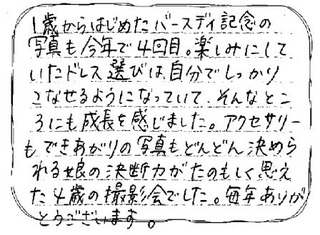 1歳からはじめたバースデイ記念の
写真も今年で4回目。楽しみにして
いたドレス選びは、自分でしっかり
こなせるようになっていて、そんなとこ
ろにも成長を感じました。アクセサリー
もできあがりの写真もどんどん決めら
れる娘の決断力がたのもしく思え
た4歳の撮影会でした。毎年ありが
とうございます。